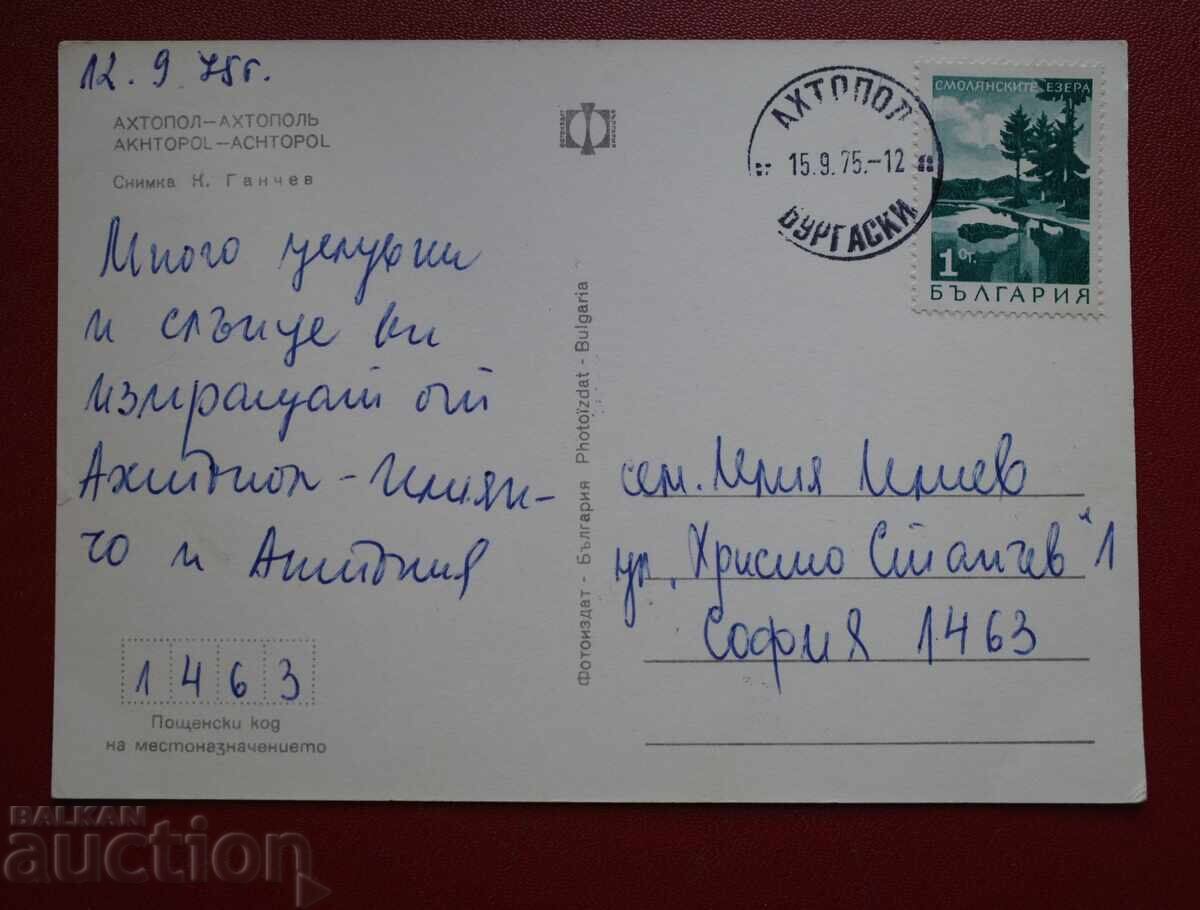 12.9.75г.
АХТОПОЛ—АХТОПОЛЬ
AKHTOPOL—ACHTOPOL
Снимка К. Ганчев
Много целувки
и слънце ви
изпращат от
Ахтопол - Илия-
чо и Антония
1463
Пощенски код
на местоназначението
Фотоиздат - България Photoïzdat - Bulgaria
АХТОПОЛ
15.9.75.-12
БУРГАСКИ
СМОЛЯНСКИТЕ ЕЗЕРА
1 ст.
БЪЛГАРИЯ
сем. Илия Илиев
ул. „Христо Станчев“ 1
София 1463
BALKAN
auction